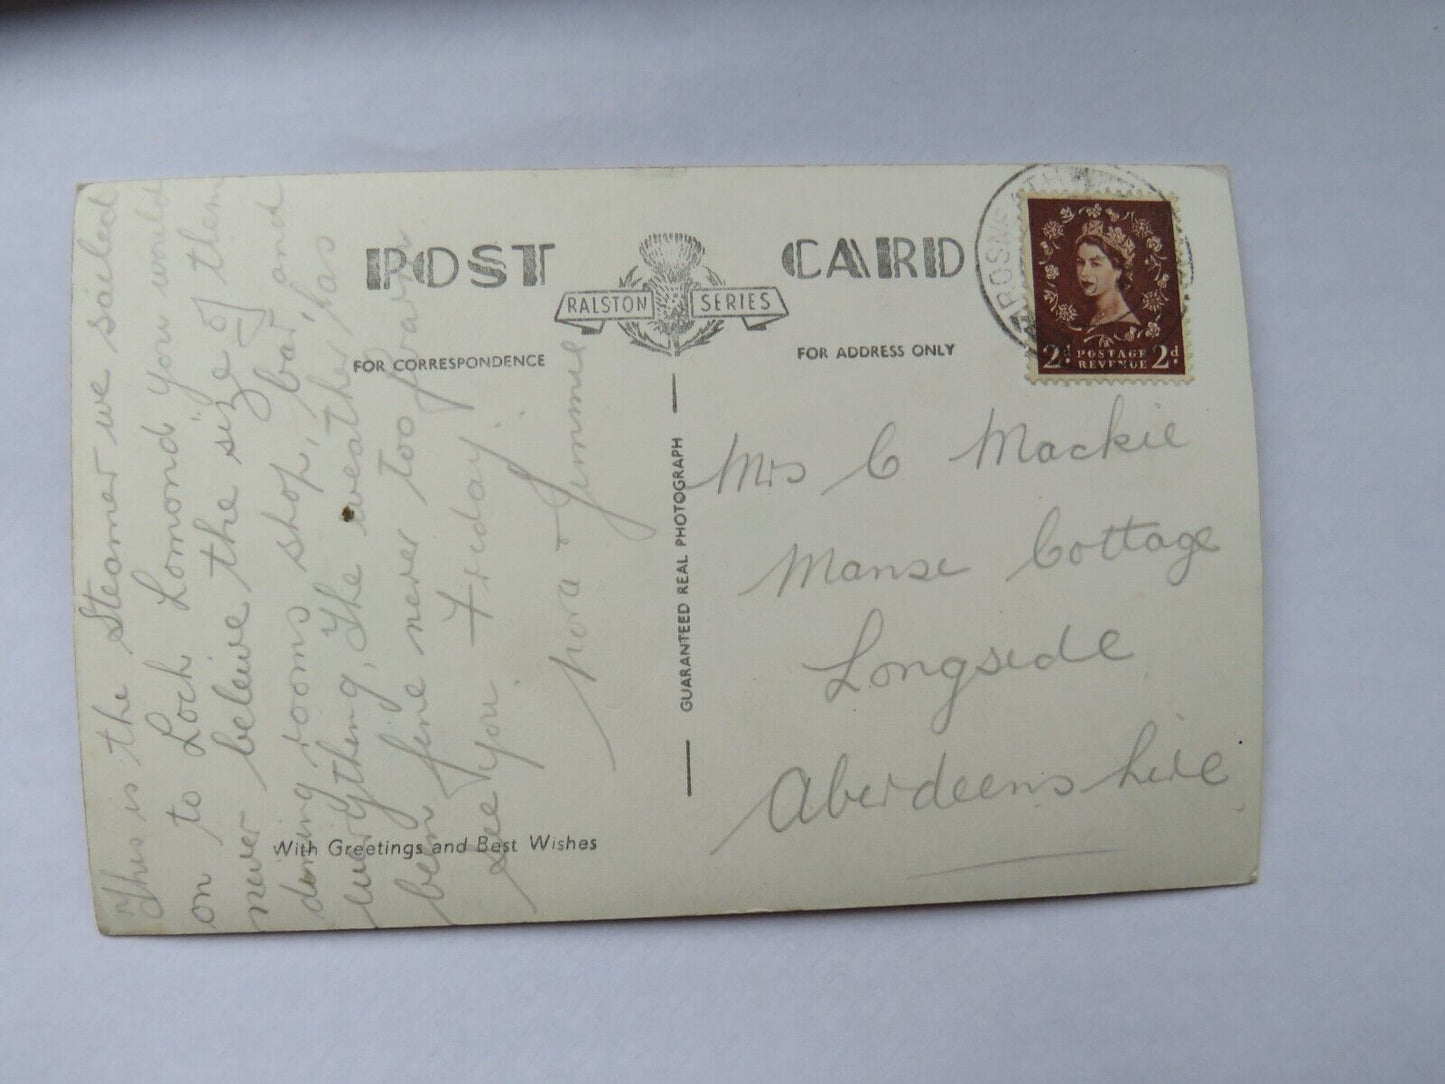 POST CARD
RALSTON SERIES
FOR CORRESPONDENCE
FOR ADDRESS ONLY
This is the Steamer we sailed
on to Loch Lomond you would
never beleive the size of them
dining rooms shop, bar, and
everything, The weather has
been fine never too warm
See you Friday.
Nora & Jimmie
With Greetings and Best Wishes
GUARANTEED REAL PHOTOGRAPH
ROSNEATH
2d POSTAGE 2d
REVENUE
Mrs C Mackie
Manse Cottage
Longside
Aberdeenshire